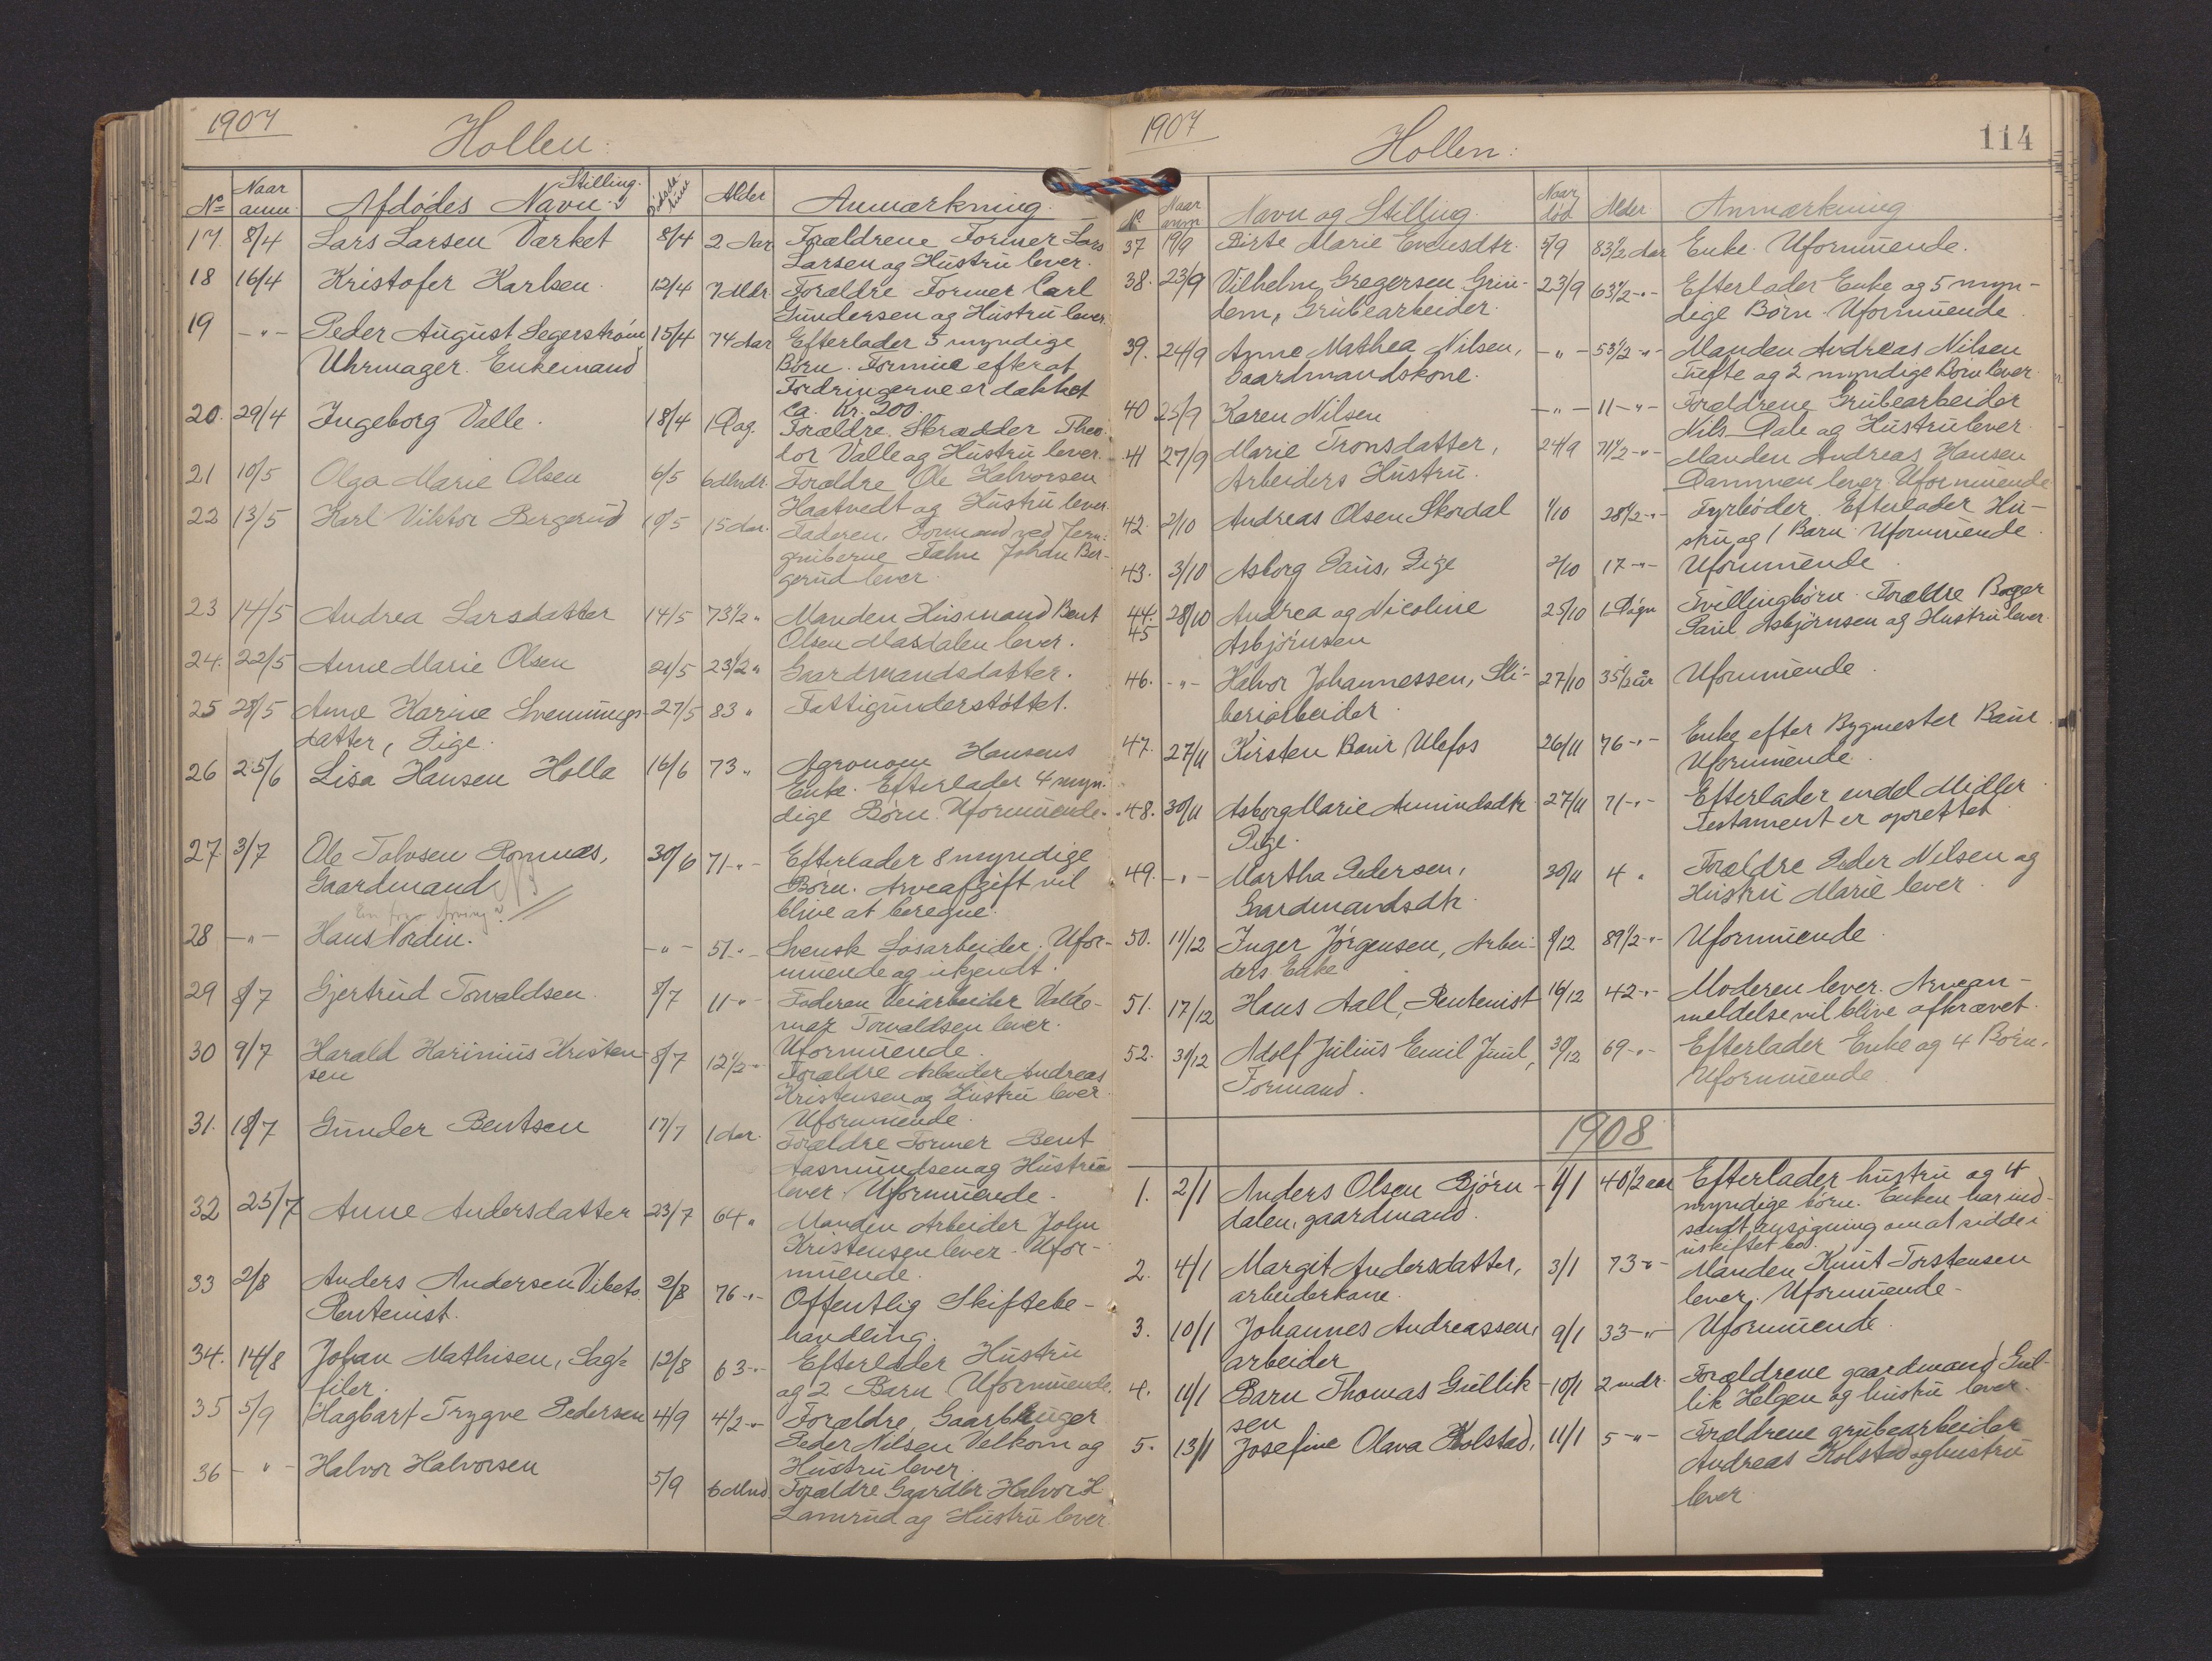 1907
Hollen:
Nº Naar anm. Afdødes Navn. Stilling. Dødsdatum Alder Anmærkning.
17. 8/4 Lars Larsen Værket 8/4 2 Aar Forældrene Former Lars
Larsen og Hustru lever.
18 16/4 Kristofer Karlsen. 12/4 7 Mdr. Forældre Former Carl
Gundersen og Hustru lever.
19 -"- Peder August Segerstrøm, 15/4 74 Aar Efterlader 5 myndige
Uhrmager. Enkemand Børn. Formue efter at
Fordringerne er dækket
ca. Kr. 200.
20. 29/4 Ingeborg Valle. 18/4 1 Dag. Forældre Skrædder Theo-
dor Valle og Hustru lever.
21 10/5 Olga Marie Olsen 6/5 6 Mndr. Forældre Ole Halvorsen
Haatvedt og Hustru lever.
22 13/5 Karl Viktor Bergerud 10/5 15 Aar. Faderen, Formand ved Jern-
gruberne Fahn Johan Ber-
gerud lever.
23 14/5 Andrea Larsdatter 14/5 73 1/2 " Manden Husmand Bent
Olsen Masdalen lever.
24. 22/5 Anne Marie Olsen 21/5 23 1/2 " Gaardmandsdatter.
25 28/5 Anne Karine Svennungs- 27/5 83 " Fattigunderstøttet.
datter, Pige.
26 25/6 Lisa Hansen Holla 16/6 73 " Agronom Hansens
Enke. Efterlader 4 myn-
dige Børn. Uformuende.
27. 3/7 Ole Talvsen Romnæs, 30/6 71 -"- Efterlader 8 myndige
Gaardmand. Børn. Arveafgift vil
blive at beregne.
28 -"- Hans Nordin. -"- 51 -"- Svensk Løsarbeider. Ufor-
muende og ukjendt.
29 8/7 Gjertrud Torvaldsen. 8/7 11 -"- Faderen Veiarbeider Valde-
mar Torvaldsen lever.
Uformuende.
30 9/7 Harald Karinius Kristen- 8/7 12 1/2 -"- Forældre Arbeider Andreas
sen Kristensen og Hustru lever.
Uformuende.
31. 18/7 Gunder Bentsen 17/7 1 Aar. Forældre Former Bent
Aasmundsen og Hustru
lever. Uformuende.
32 25/7 Anne Andersdatter 23/7 64 " Manden Arbeider John
Kristensen lever. Ufor-
muende.
33 2/8 Anders Andersen Vibeto. 2/8 76 -"- Offentlig Skiftebe-
Rentenist. handling.
34. 14/8 Johan Mathisen, Sag- 12/8 63 -"- Efterlader Hustru
filer. og 2 Barn Uformuende.
35 5/9 Hagbart Trygve Pedersen 4/9 4 1/2 -"- Forældre, Gaarbruger
Peder Nilsen Velkom og
Hustru lever.
36 -"- Halvor Halvorsen 5/9 6 Mnd Forældre Gaardbr Halvor H.
Lamrud og Hustru lever.
1907
Hollen:
114
Nº Naar anm. Navn og Stilling. Naar død Alder. Anmærkning
37 19/9 Birte Marie Evensdtr. 5/9 83 1/2 Aar Enke. Uformuende.
38. 23/9 Vilhelm Gregersen Grin- 23/9 63 1/2 -"- Efterlader Enke og 5 myn-
dem, Grubearbeider. dige Børn. Uformuende.
39. 24/9 Anne Mathea Nilsen, -"- 53 1/2 -"- Manden Andreas Nilsen
Gaardmandskone. Tufte og 2 myndige Børn lever.
40 25/9 Karen Nilsen -"- 11 -"- Forældrene Grubearbeider
Nils Dale og Hustru lever.
41 27/9 Marie Tronsdatter, 24/9 71 1/2 -"- Manden Andreas Hansen
Arbeiders Hustru. Dammen lever. Uformuende
42. 2/10 Andreas Olsen Skordal 1/10 28 1/2 -"- Fyrbøder. Efterlader Hu-
stru og 1 Barn. Uformuende.
43. 3/10 Asborg Paus, Pige 2/10 17 -"- Uformuende.
44. 28/10 Andrea og Nicoline 25/10 1 Døgn Tvillingbørn. Forældre Bager
45 Asbjørnsen Paul Asbjørnsen og Hustru lever.
46. -"- Halvor Johannessen, Sli- 27/10 35 1/2 år Uformuende.
beriarbeider.
47. 27/11 Kirsten Baur Ulefos 26/11 76 -"- Enke efter Bygmester Baur.
Uformuende.
48. 30/11 Asborg Marie Amundsdtr. 27/11 71 -"- Efterlader endel Midler.
Pige. Testament er oprettet
49. -"- Martha Pedersen, 30/11 4 " Forældre Peder Nilsen og
Gaardmandsdtr. Hustru Marie lever.
50. 11/12 Inger Jørgensen, Arbei- 8/12 89 1/2 -"- Uformuende.
ders Enke
51. 17/12 Hans Aall, Rentenist 16/12 42 -"- Moderen lever. Arvean-
meldelse vil blive afkrævet.
52. 31/12 Adolf Julius Emil Juul, 30/12 69 -"- Efterlader Enke og 4 Børn.
Formand. Uformuende
1908
1. 2/1 Anders Olsen Bjørn- 1/1 40 1/2 aar Efterlader hustru og 4
dalen, gaardmand. myndige børn. Enken har ind-
sendt ansøgning om at sidde i
uskiftet bo.
2. 4/1 Margit Andersdatter, 3/1 73 -"- Manden Knut Torstensen
arbeiderkone. lever. Uformuende.
3. 10/1 Johannes Andreassen, 9/1 33 -"- Uformuende.
arbeider
4. 11/1 Barn Thomas Gullik- 10/1 2 mdr. Forældrene gaardmand Gul-
sen lik Helgen og hustru lever.
5. 13/1 Josefine Olava Kolstad, 11/1 5 -"- Forældrene grubearbeider
Andreas Kolstad og hustru
lever.